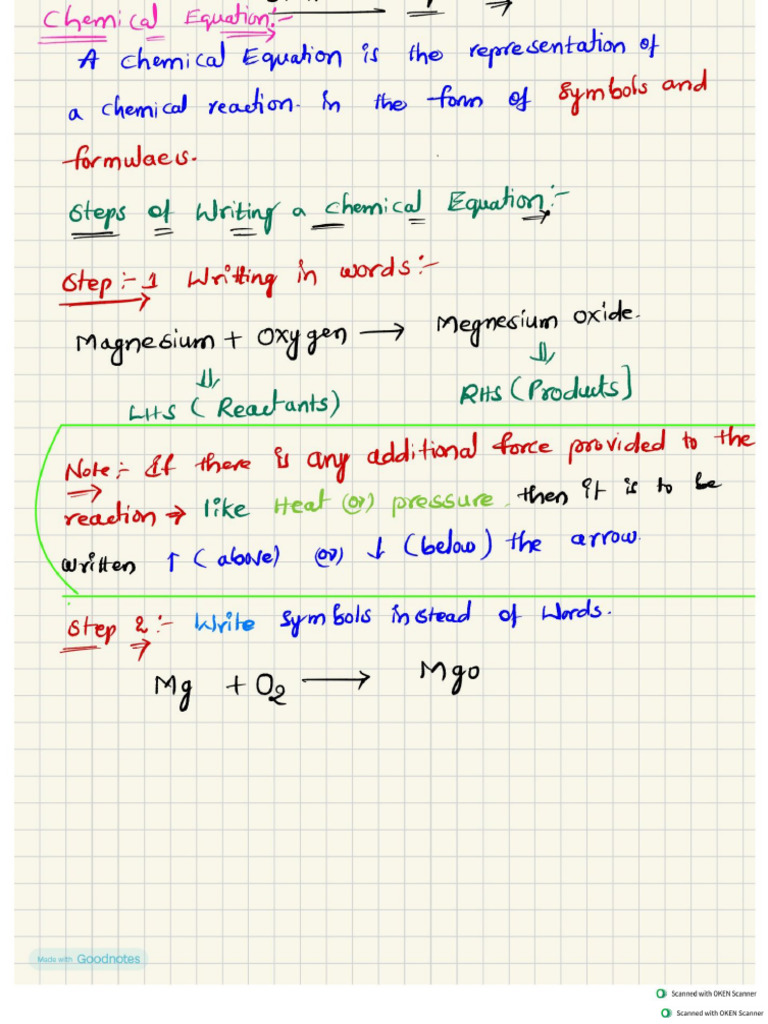 Chemical Equation:-
A chemical Equation is the representation of
a chemical reaction. in the form of symbols and
formulaeis.
Steps of Writing a chemical Equation:-
Step:-1 Writting in words:-
Magnesium + Oxygen → Megnesium oxide.
⇓ ⇓
LHS (Reactants) RHS (Products]
Note:- If there is any additional force provided to the
reaction → like Heat (or) pressure. then it is to be
written ↑ (above) (or) ↓ (below) the arrow.
Step 2:- Write symbols instead of words.
Mg + O2 → Mgo
Made with Goodnotes
Scanned with OKEN Scanner
Scanned with OKEN Scanner